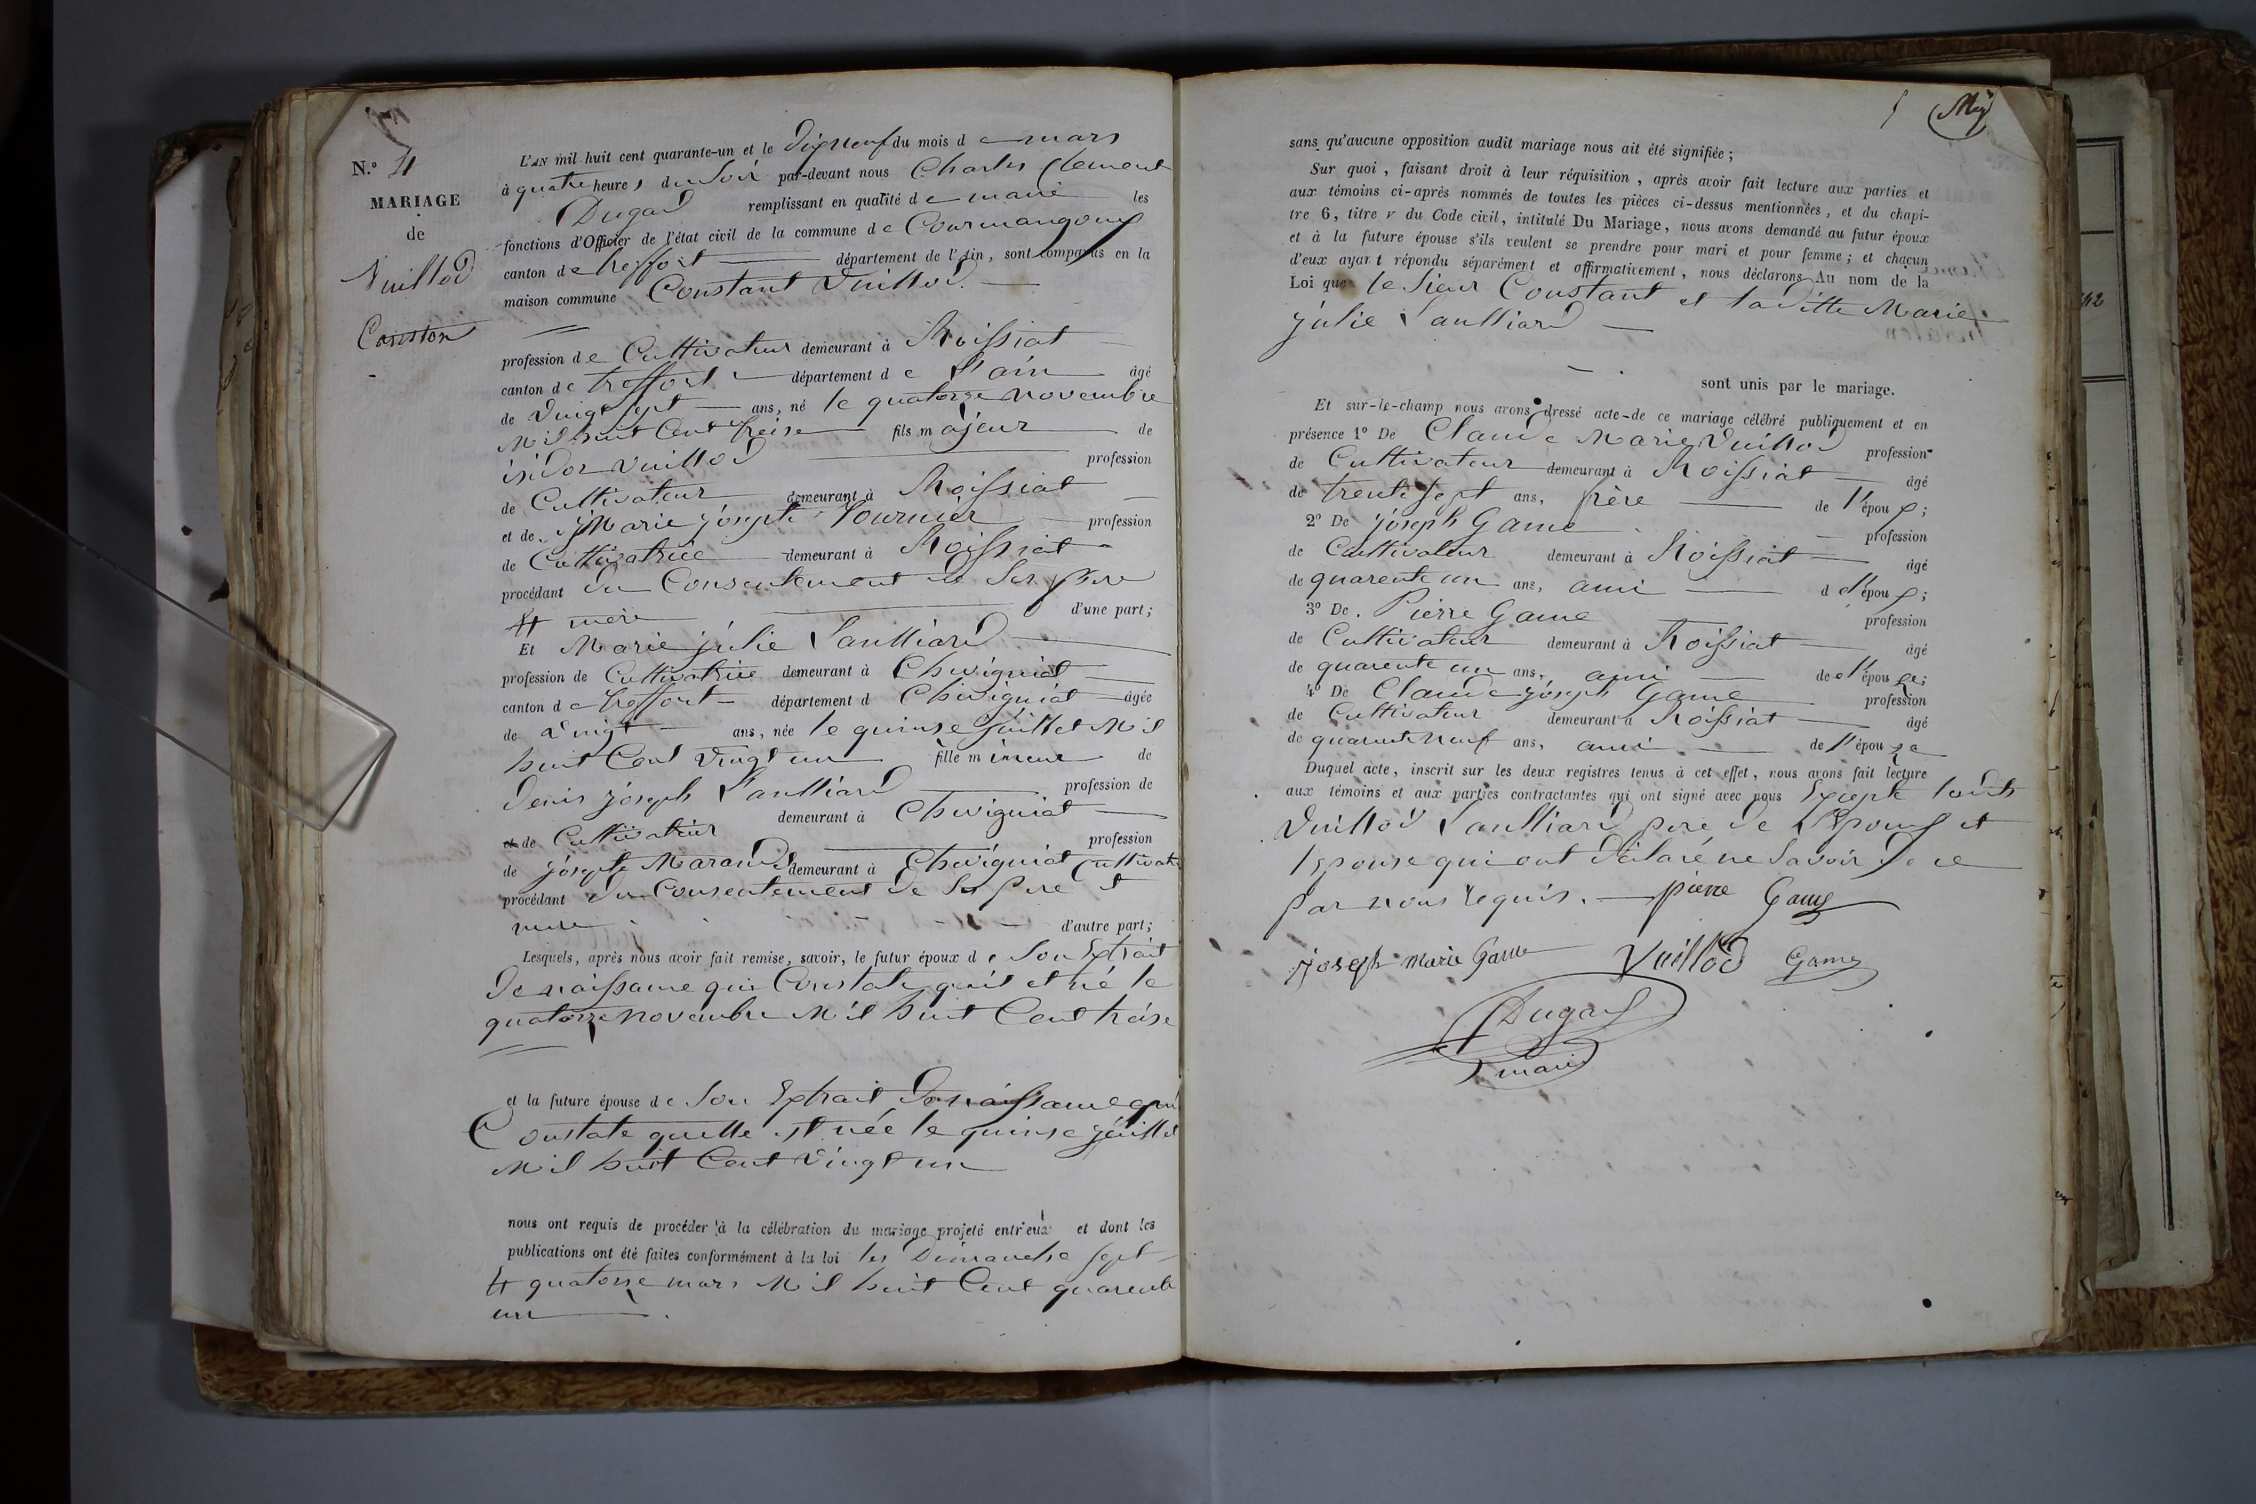 N.° 4
MARIAGE
de
Vuillod
Coriston
L'AN mil huit cent quarante-un et le dixneuf du mois de mars
à quatre heures du soir par-devant nous Charles Clement
Dugad remplissant en qualité de maire les
fonctions d'Officier de l'état civil de la commune de Courmangoux
canton de treffort département de l'Ain, sont comparus en la
maison commune Constant Vuillod.
profession de Cultivateur demeurant à Roissiat
canton de treffort département de l'ain âgé
de Vingt sept ans, né le quatorze novembre
Mil huit Cent treise fils majeur de
isidor Vuillod profession
de Cultivateur demeurant à Roissiat
et de Marie josephte fournier profession
de Cultivatrice demeurant à Roissiat
procédant du Consentement de Ses père
et mère d'une part;
Et Marie julie Saulliard
profession de Cultivatrice demeurant à Chevigniat
canton de treffort département d Chevigniat âgée
de Vingt ans, née le quinse juillet Mil
huit Cent vingt un fille mineure de
denis joseph Saulliard profession de
et de Cultivateur demeurant à Chevigniat
profession
de josephte Marand demeurant à Chevigniat Cultivat
procédant du Consentement de Ses pere et
mere d'autre part;
Lesquels, après nous avoir fait remise, savoir, le futur époux de Son Extrait
de naissance qui Constate qu'il et né le
quatorze novembre Mil huit Cent treise
et la future épouse de Son Extrait de naissance qui
Constate quelle est née le quinse juillet
Mil huit Cent Vingt un
nous ont requis de procéder à la célébration du mariage projeté entr'eux et dont les
publications ont été faites conformément à la loi les Dimanche sept
et quatorse mars Mil huit Cent quarente
un
sans qu'aucune opposition audit mariage nous ait été signifiée;
Sur quoi, faisant droit à leur réquisition, après avoir fait lecture aux parties et
aux témoins ci-après nommés de toutes les pièces ci-dessus mentionnées, et du chapi-
tre 6, titre v du Code civil, intitulé Du Mariage, nous avons demandé au futur époux
et à la future épouse s'ils veulent se prendre pour mari et pour femme; et chacun
d'eux ayant répondu séparément et affirmativement, nous déclarons Au nom de la
Loi que le Sieur Constant et laditte Marie
julie Saulliard
sont unis par le mariage.
Et sur-le-champ nous avons dressé acte de ce mariage célébré publiquement et en
présence 1° De Claude Marie Vuillod profession
de Cultivateur demeurant à Roissiat âgé
de trente sept ans, frère de l'époux;
2° De joseph Game profession
de Cultivateur demeurant à Roissiat âgé
de quarente un ans, ami d l'époux;
3° De Pierre Game profession
de Cultivateur demeurant à Roissiat âgé
de quarente un ans, ami de l'épouse;
4° De Claude joseph Game profession
de Cultivateur demeurant à Roissiat âgé
de quarente neuf ans, ami de l'épouse
Duquel acte, inscrit sur les deux registres tenus à cet effet, nous avons fait lecture
aux témoins et aux parties contractantes qui ont signé avec nous Excepté lesdits
Vuillod Saulliard pere de l'Epouse et
lepouse qui ont déclaré ne Savoir de ce
par nous requis. pierre Game
joseph marie Game Vuillod Game
Dugad
maire